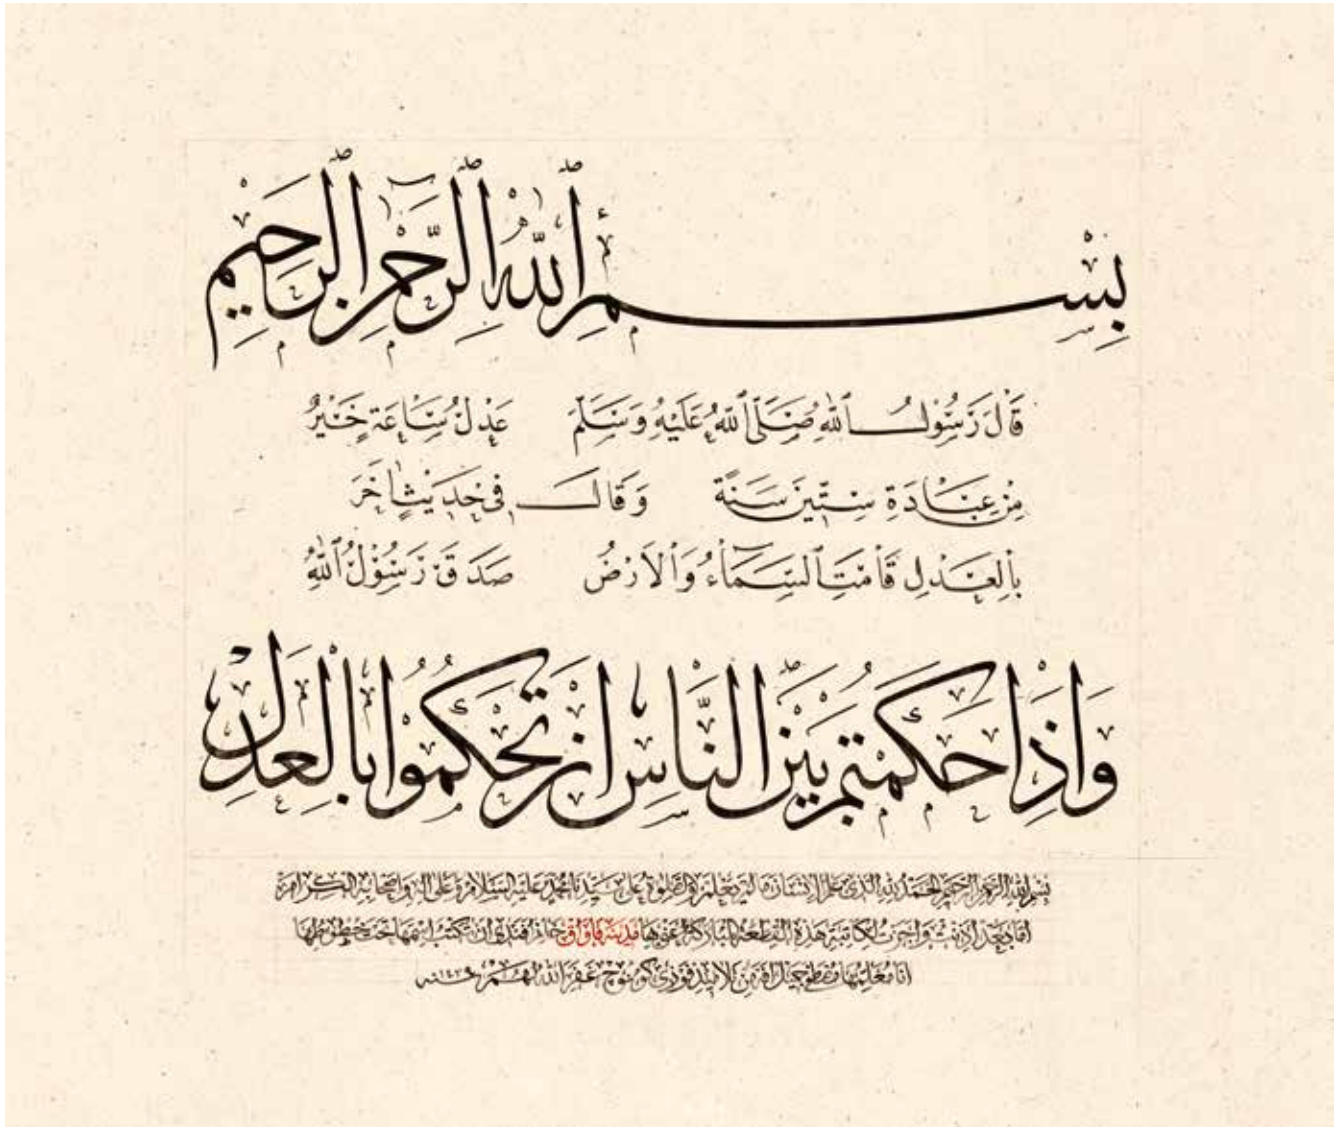 بِسْمِ ٱللّٰهِ ٱلرَّحْمٰنِ ٱلرَّحِيمِ
قَالَ رَسُولُ ٱللّٰهِ صَلَّى ٱللّٰهُ عَلَيْهِ وَسَلَّمَ عَدْلُ سَاعَةٍ خَيْرٌ
مِنْ عِبَادَةِ سِتِّينَ سَنَةً وَقَالَ فِي حَدِيثٍ اٰخَرَ
بِالْعَدْلِ قَامَتِ ٱلسَّمَاءُ وَٱلْاَرْضُ صَدَقَ رَسُولُ ٱللّٰهِ
وَاِذَا حَكَمْتُمْ بَيْنَ النَّاسِ اَنْ تَحْكُمُوا بِالْعَدْلِ
بسم الله الرحمن الرحيم الحمد لله الذى علم الانسان مالم يعلم والصلوة على سيدنا محمد عليه السلام وعلى اله واصحابه الكرام
اما بعد اذنت واجزت لكاتبة هذه القطعة المباركة ان تكتب اسمها تحت خطوطها
انا معلمها من تلاميذ غفر الله لهم